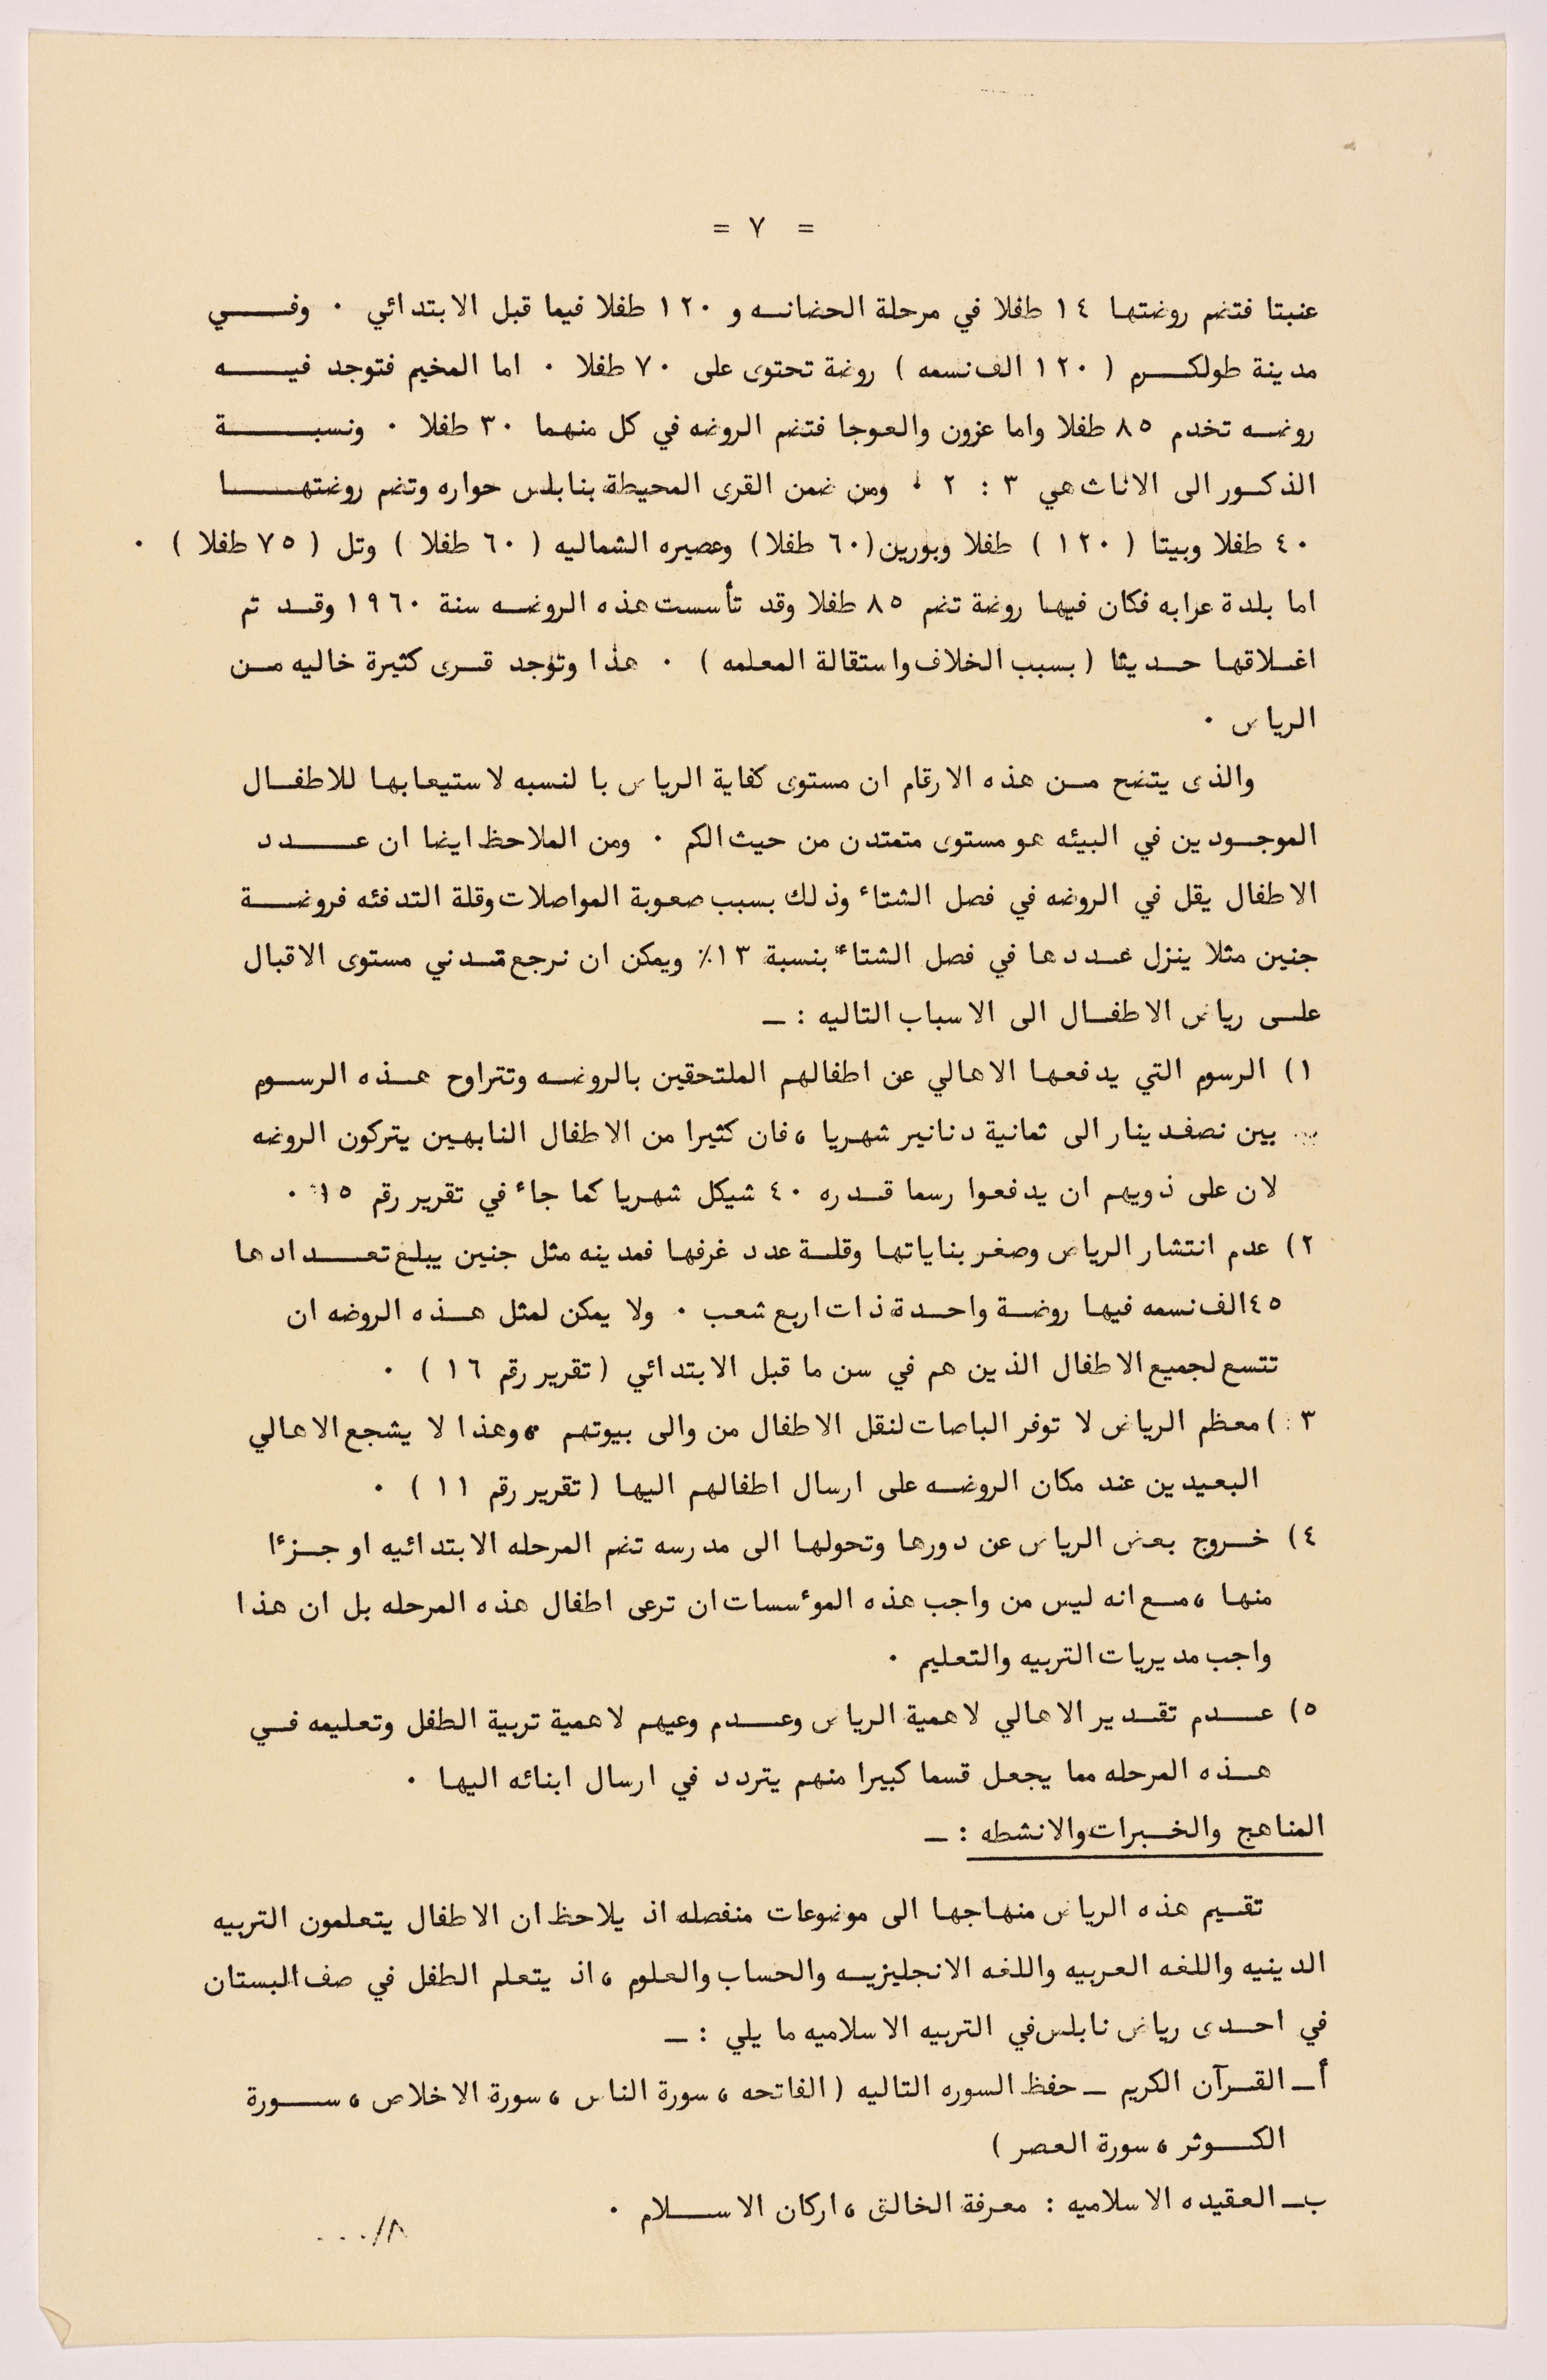 = ٧ =
عنبتا فتضم روضتها ١٤ طفلا في مرحلة الحضانه و ١٢٠ طفلا فيما قبل الابتدائي ٠ وفي
مدينة طولكرم ( ١٢٠ الف نسمه ) روضة تحتوى على ٧٠ طفلا ٠ اما المخيم فتوجد فيه
روضه تخدم ٨٥ طفلا واما عزون والعوجا فتضم الروضه في كل منهما ٣٠ طفلا ٠ ونسبة
الذكور الى الاناث هي ٣ : ٢ ٠ ومن ضمن القرى المحيطة بنابلس حواره وتضم روضتها
٤٠ طفلا وبيتا ( ١٢٠ ) طفلا وبورين (٦٠ طفلا) وعصيره الشماليه ( ٦٠ طفلا ) وتل ( ٧٥ طفلا ) ٠
اما بلدة عرابه فكان فيها روضة تضم ٨٥ طفلا وقد تأسست هذه الروضه سنة ١٩٦٠ وقد تم
اغلاقها حديثا ( بسبب الخلاف واستقالة المعلمه ) ٠ هذا وتوجد قرى كثيرة خاليه من
الرياض ٠
والذى يتضح من هذه الارقام ان مستوى كفاية الرياض بالنسبه لاستيعابها للاطفال
الموجودين في البيئه هو مستوى متمتدن من حيث الكم ٠ ومن الملاحظ ايضا ان عدد
الاطفال يقل في الروضه في فصل الشتاء وذلك بسبب صعوبة المواصلات وقلة التدفئه فروضة
جنين مثلا ينزل عددها في فصل الشتاء بنسبة ١٣٪ ويمكن ان نرجع تدني مستوى الاقبال
على رياض الاطفال الى الاسباب التاليه : ـ
١) الرسوم التي يدفعها الاهالي عن اطفالهم الملتحقين بالروضه وتتراوح هذه الرسوم
بين نصف دينار الى ثمانية دنانير شهريا ، فان كثيرا من الاطفال النابهين يتركون الروضه
لان على ذويهم ان يدفعوا رسما قدره ٤٠ شيكل شهريا كما جاء في تقرير رقم ١٥ ٠
٢) عدم انتشار الرياض وصغر بناياتها وقلة عدد غرفها فمدينه مثل جنين يبلغ تعدادها
٤٥ الف نسمه فيها روضة واحدة ذات اربع شعب ٠ ولا يمكن لمثل هذه الروضه ان
تتسع لجميع الاطفال الذين هم في سن ما قبل الابتدائي ( تقرير رقم ١٦ ) ٠
٣ ) معظم الرياض لا توفر الباصات لنقل الاطفال من والى بيوتهم ، وهذا لا يشجع الاهالي
البعيدين عند مكان الروضه على ارسال اطفالهم اليها ( تقرير رقم ١١ ) ٠
٤) خروج بعض الرياض عن دورها وتحولها الى مدرسه تضم المرحله الابتدائيه او جزءا
منها ، مع انه ليس من واجب هذه المؤسسات ان ترعى اطفال هذه المرحله بل ان هذا
واجب مديريات التربيه والتعليم ٠
٥) عدم تقدير الاهالي لاهمية الرياض وعدم وعيهم لاهمية تربية الطفل وتعليمه في
هذه المرحله مما يجعل قسما كبيرا منهم يتردد في ارسال ابنائه اليها ٠
المناهج والخبرات والانشطه : ـ
تقسيم هذه الرياض منهاجها الى موضوعات منفصله اذ يلاحظ ان الاطفال يتعلمون التربيه
الدينيه واللغه العربيه واللغه الانجليزيه والحساب والعلوم ، اذ يتعلم الطفل في صف البستان
في احدى رياض نابلس في التربيه الاسلاميه ما يلي : ـ
أ ـ القرآن الكريم ـ حفظ السوره التاليه ( الفاتحه ، سورة الناس ، سورة الاخلاص ، سورة
الكوثر ، سورة العصر )
ب ـ العقيده الاسلاميه : معرفة الخالق ، اركان الاسلام ٠
٨/٠٠٠